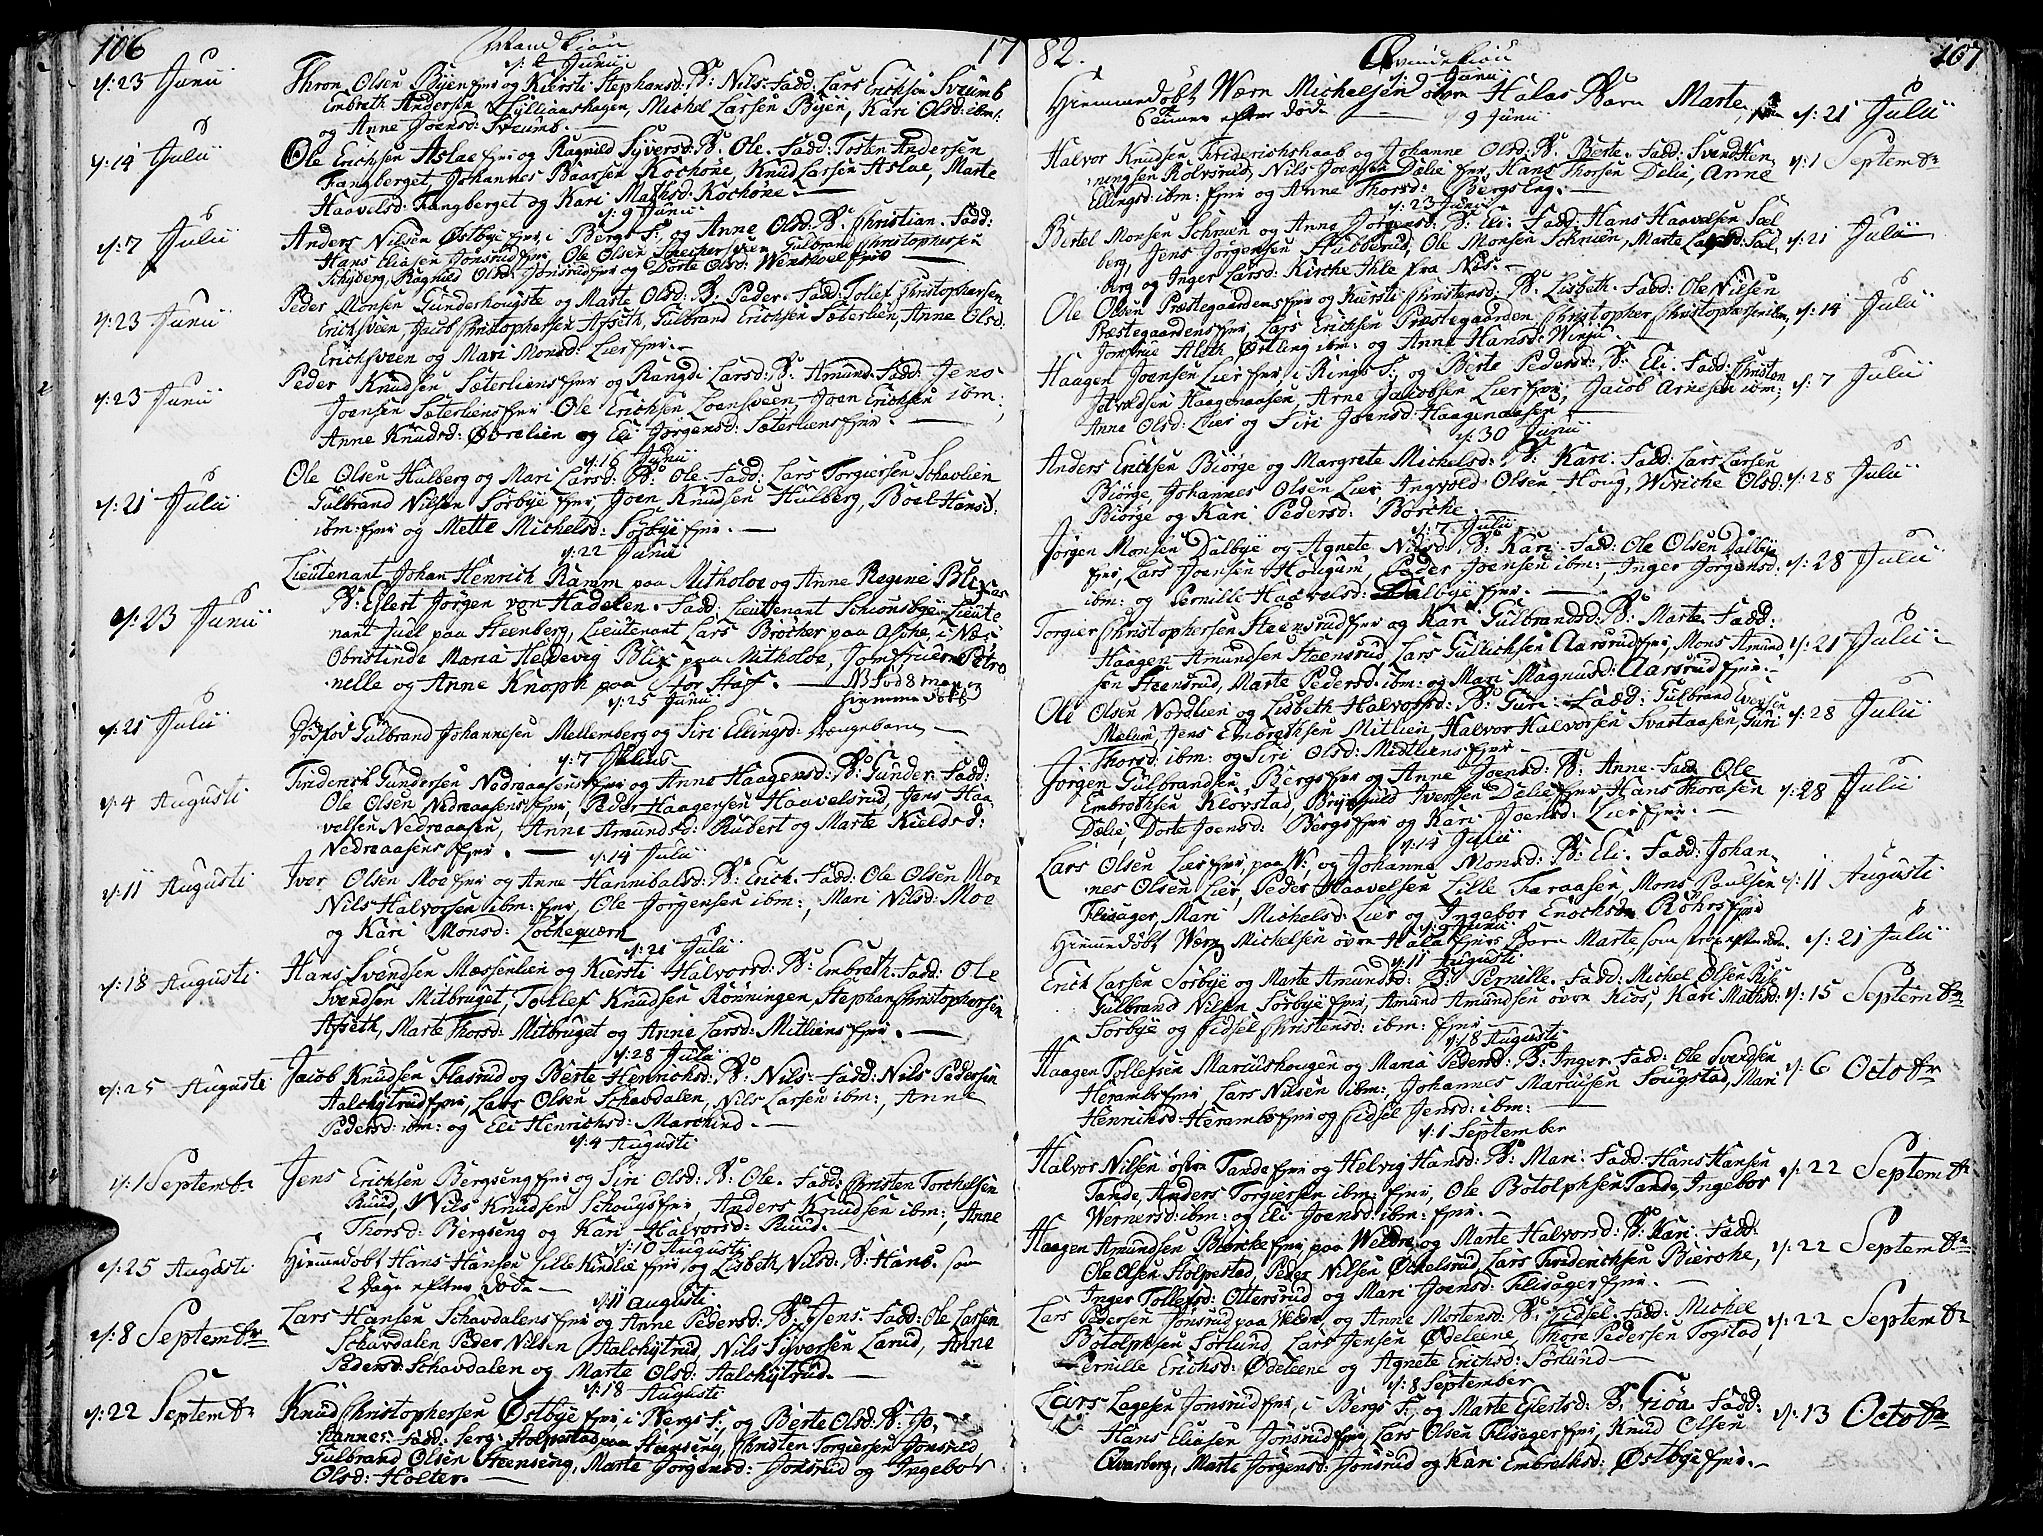 106 Mandkiön 17
d: 2 Junii
d: 23 Junii Thron Olsen Byen fmr og Kiersti Stephansd: B: Nils. Fadd: Lars Erichsen Sveumb
Embreth Andersen Lillianshagen, Michel Larsen Byen, Kari Olsd: ibm:
og Anne Joensd: Sveumb.
d: 14 Julii Ole Erichsen Aslae fmr og Ragnild Syversd: B: Ole. Fadd: Tosten Andersen
Fangberget, Johannes Baarsen Kochöne, Knud Larsen Aslae, Marte
Haavelsd: Fangberget og Kari Mathsd: Kochöne.
d: 9 Junii
d: 7 Julii Anders Nilsen Östbye fmr i Bergs S: og Anne Olsd: B: Christian. Fadd:
Hans Eliasen Jonsrud fmr, Ole Olsen Snechersveen, Gulbrand Christophersen
Schyberg, Ragnild Olsd: Jonsrud fmr og Dorte Olsd: Wenskoel fmr
d: 23 Junii Peder Monsen Gunderhougste og Marte Olsd: B: Peder. Fadd: Tollef Christophersen
Erichsveen, Jacob Christophersen Afseth, Gulbrand Erichsen Sæterlien, Anne Olsd:
Erichsveen og Mari Monsd: Lier fmr.
d: 23 Junii Peder Knudsen Sæterliens fmr og Rangdi Larsd: B: Amund. Fadd: Jens
Joensen Sæterliens fmr Ole Erichsen Loensveen, Joen Erichsen ibm:,
Anne Knudsd: Övrelien og Eli Jörgensd: Sæterliens fmr.
d: 16 Junii
d: 21 Julii Ole Olsen Hulberg og Mari Larsd: B: Ole. Fadd: Lars Torgiersen Schavlien
Gulbrand Nilsen Sörbye fmr, Joen Knudsen Hulberg, Boel Hansd:
ibm: fmr og Mette Michelsd: Sörbye fmr.
d: 22 Junii
d: 23 Junii Lieutenant Johan Henrich Ramm paa Mitholoe og Anne Regine Blix
B: Eylert Jörgen von Hadelen. Fadd: Lieutenant Schionsbye, Lieute
nant Juel paa Steenberg, Lieutenant Lars Bröcher paa Asche, i Næs
Obristinde Maria Hedevig Blix paa Mitholoe, Jomfruerne Petro
nelle og Anne Knoph paa Stor Haf. NB Fød 8 may
hiemme døbt
d: 25 Junii
d: 21 Julii Dödföd Gulbrand Johannesen Mellemberg og Siri Ellingsd: Drengebarn
d: 7 Julii
d: 4 Augusti Frederick Gundersen Nedreaasens fmr og Anne Haagensd: B: Gunder. Fadd:
Ole Olsen Nedreaasens fmr, Peder Haagensen Haavelsrud, Jens Haa-
velsen Nedreaasen, Anne Amundsd: Rubert og Marte Kieldsd:
Nedreaasens fmr.
d: 14 Julii
d: 11 Augusti Iver Olsen Moe fmr og Anne Hannibalsd: B: Erich. Fadd: Ole Olsen Moe
Nils Halvorsen ibm: fmr, Ole Jörgensen ibm:, Mari Nilsd: Moe
og Kari Monsd: Löchequærn
d: 21 Julii
d: 18 Augusti Hans Svendsen Mæssenlien og Kiersti Halvorsd: B: Embreth. Fadd: Ole
Svendsen Mitbruget, Tollef Knudsen Rönningen, Stephan Christophersen
Afseth, Marte Thorsd: Mitbruget og Anne Larsd: Mitliens fmr.
d: 28 Julii
d: 25 Augusti Jacob Knudsen Flasrud og Berte Henrichsd: B: Nils. Fadd: Nils Pedersen
Aalchytrud fmr, Lars Olsen Schavdalen, Nils Larsen ibm:, Anne
Pedersd: ibm: og Eli Henrichsd: Marchind.
d: 4 Augusti
d: 1 Septembr Jens Erichsen Bergseng fmr og Siri Olsd: B: Ole. Fadd: Christen Torchelsen
Ruud, Nils Knudsen Schougs fmr, Anders Knudsen ibm:, Anne
Thorsd: Bergseng og Kari Halvorsd: Ruud.
d: 10 Augusti
d: 25 Augusti Hiemmedöbt Hans Hansen Lille Kindlie fmr og Lisbeth Nilsd: B: Hans. som
2 Dage efter döde
d: 11 Augusti
d: 8 Septembr Lars Hansen Schavdalens fmr og Anne Pedersd: B: Jens. Fadd: Ole Larsen
Schavdalen, Peder Nilsen Aalchytrud, Nils Syversen Larud, Anne
Pedersd: Schavdalen og Marte Olsd: Aalchytrud.
d: 18 Augusti
d: 22 Septembr Knud Christophersen Östbye fmr i Bergs S:, og Berte Olsd: B: Jo-
hannes. Fadd: Serg: Holpestad paa Steenseng, Christen Torgiersen Jonsrud
Gulbrand Olsen Steenseng, Marte Jörgensd: Jonsrud og Ingebor
Olsd: Holter.
82. Qvindekiön 107
d: 9 Junii
Hiemmedöbt Wærn Michelsen övre Halas Barn Marte, d: 21 Julii
6 uiner efter döde
d: 9 Junii
Halvor Knudsen Friderichshaab og Johanne Olsd: B: Berte. Fadd: Svend Hen- d: 1 Septembr
ningsen Kolvsrud, Nils Joensen Dælie fmr, Hans Thorsen Dælie, Anne
Ellingsd: ibm: fmr og Anne Thorsd: Bergseng.
d: 23 Junii
Bertel Monsen Schruen og Anne Jörgensd: B: Eli. Fadd: Hans Haavelsen Sæl d: 21 Julii
berg, Jens Jörgensen Stubberud, Ole Monsen Schruen, Marte Larsd: Sæl
berg og Inger Larsd: Kirche Ihle fra Næs.
Ole Olsen Præstegaardens fmr og Kiersti Christensd: B: Lisbeth. Fadd: Ole Nilsen d: 14 Julii
Præstegaardens fmr, Lars Erichsen Præstegaarden, Christopher Christophersen ibm,
Jomfrue Aleth Östling ibm: og Anne Hansd: Winju.
Haagen Joensen Lier fmr, i Rings S: og Berte Pedersd: B: Eli. Fadd: Christen d: 7 Julii
Jetvedsen Haagenaasen, Arne Jacobsen Lier fmr, Jacob Arnesen ibm:
Anne Olsd: Lier og Siri Joensd: Haagenaasen
d: 30 Junii
Anders Erichsen Biörge og Margrete Michelsd: B: Kari. Fadd: Lars Larsen d: 28 Julii
Biörge, Johannes Olsen Lier, Ingvold Olsen Houg, Wiviche Olsd:
Biörge og Kari Pedersd: Börche.
d: 7 Julii
Jörgen Monsen Dalbye og Agnete Nilsd: B: Kari. Fadd: Ole Olsen Dalbye d: 28 Julii
fmr, Lars Joensen Hougum, Peder Joensen ibm:, Inger Jörgensd:
ibm: og Pernille Haavelsd: Dalbye fmr.
Torgier Christophersen Steensrud fmr og Kari Gulbrandsd: B: Marte. Fadd: d: 21 Julii
Haagen Amundsen Steensrud, Lars Gullichsen Aarsrud fmr, Mons Amund
sen Steensrud, Marte Pedersd: ibm: og Mari Magnusd: Aarsrud fmr.
Ole Olsen Nordlien og Lisbeth Halvorsd: B: Guri. Fadd: Gulbrand Iversen d: 28 Julii
Mælum, Jens Embrethsen Mitlien, Halvor Halvorsen Svartaasen, Guri
Thorsd: ibm: og Siri Olsd: Midtliens fmr.
Jörgen Gulbrandsen Bergs fmr og Anne Joensd: B: Anne. Fadd: Ole d: 28 Julii
Embrethsen Klövstad, Brynild Iversen Dælie fmr, Hans Thorsen
Dælie, Dorte Joensd: Bergs fmr og Kari Joensd: Lier fmr.
d: 14 Julii
Lars Olsen Lier fmr, paa W: og Johanne Monsd: B: Eli. Fadd: Johan- d: 11 Augusti
nes Olsen Lier, Peder Haavelsen Lille Faraasen, Mons Paulsen
Flisager, Mari Michelsd: Lier og Ingebor Enochsd: Röhrs fmr
d: 9 Junii
Hiemmedöbt Wærn Michelsen övre Hala fmrs Barn Marte, som strax efter döde. d: 21 Julii
d: 11 Augusti
Erich Larsen Sörbye og Marte Amundsd: B: Pernille. Fadd: Michel Olsen Kiös d: 15 Septembr
Gulbrand Nilsen Sörbye fmr, Amund Amundsen övre Kiös, Kari Mathsd:
Sörbye og Sidsel Christensd: ibm: fmr
d: 18 Augusti
Haagen Tollefsen Marcushougen og Maria Pedersd: B: Inger. Fadd: Ole Svendsen d: 6 Octobr
Herambs fmr, Lars Nilsen ibm:, Johannes Marcusen Sougstad, Mari
Henrichsd: Herambs fmr og Sidsel Jensd: ibm:
d: 1 September
Halvor Nilsen östre Tande fmr og Helvig Hansd: B: Mari. Fadd: Hans Hansen d: 22 Septembr
Tande, Anders Torgiersen ibm: fmr, Ole Botolphsen Tande, Ingebor
Wernersd: ibm: og Eli Joensd: ibm: fmr.
Haagen Amundsen Bierche fmr paa Weldre og Marte Halvorsd: B: Kari. Fadd: d: 22 Septembr
Ole Olsen Stolpestad, Peder Nilsen Öchelsrud, Lars Friderichsen Bierche,
Inger Tollefsd: Ottersrud og Mari Joensd: Flisager fmr.
Lars Pedersen Jonsrud paa Weldre, og Anne Mortensd: B: Sidsel. Fadd: Michel d: 22 Septembr
Botolphsen Sörlund, Lars Jensen Ödeleene, Thore Pedersen Togstad,
Pernille Erichsd: Ödeleene og Agnete Erichsd: Sörlund
d: 8 September
Lars Lagesen Jonsrud fmr, i Bergs S:, og Marte Ejertsd: B: Giöa. Fadd: d: 13 Octobr
Hans Eliasen Jonsrud fmr, Lars Olsen Flisager fmr, Knud Olsen
Qvarberg, Marte Jörgensd: Jonsrud og Kari Embrethsd: Östbye fmr.